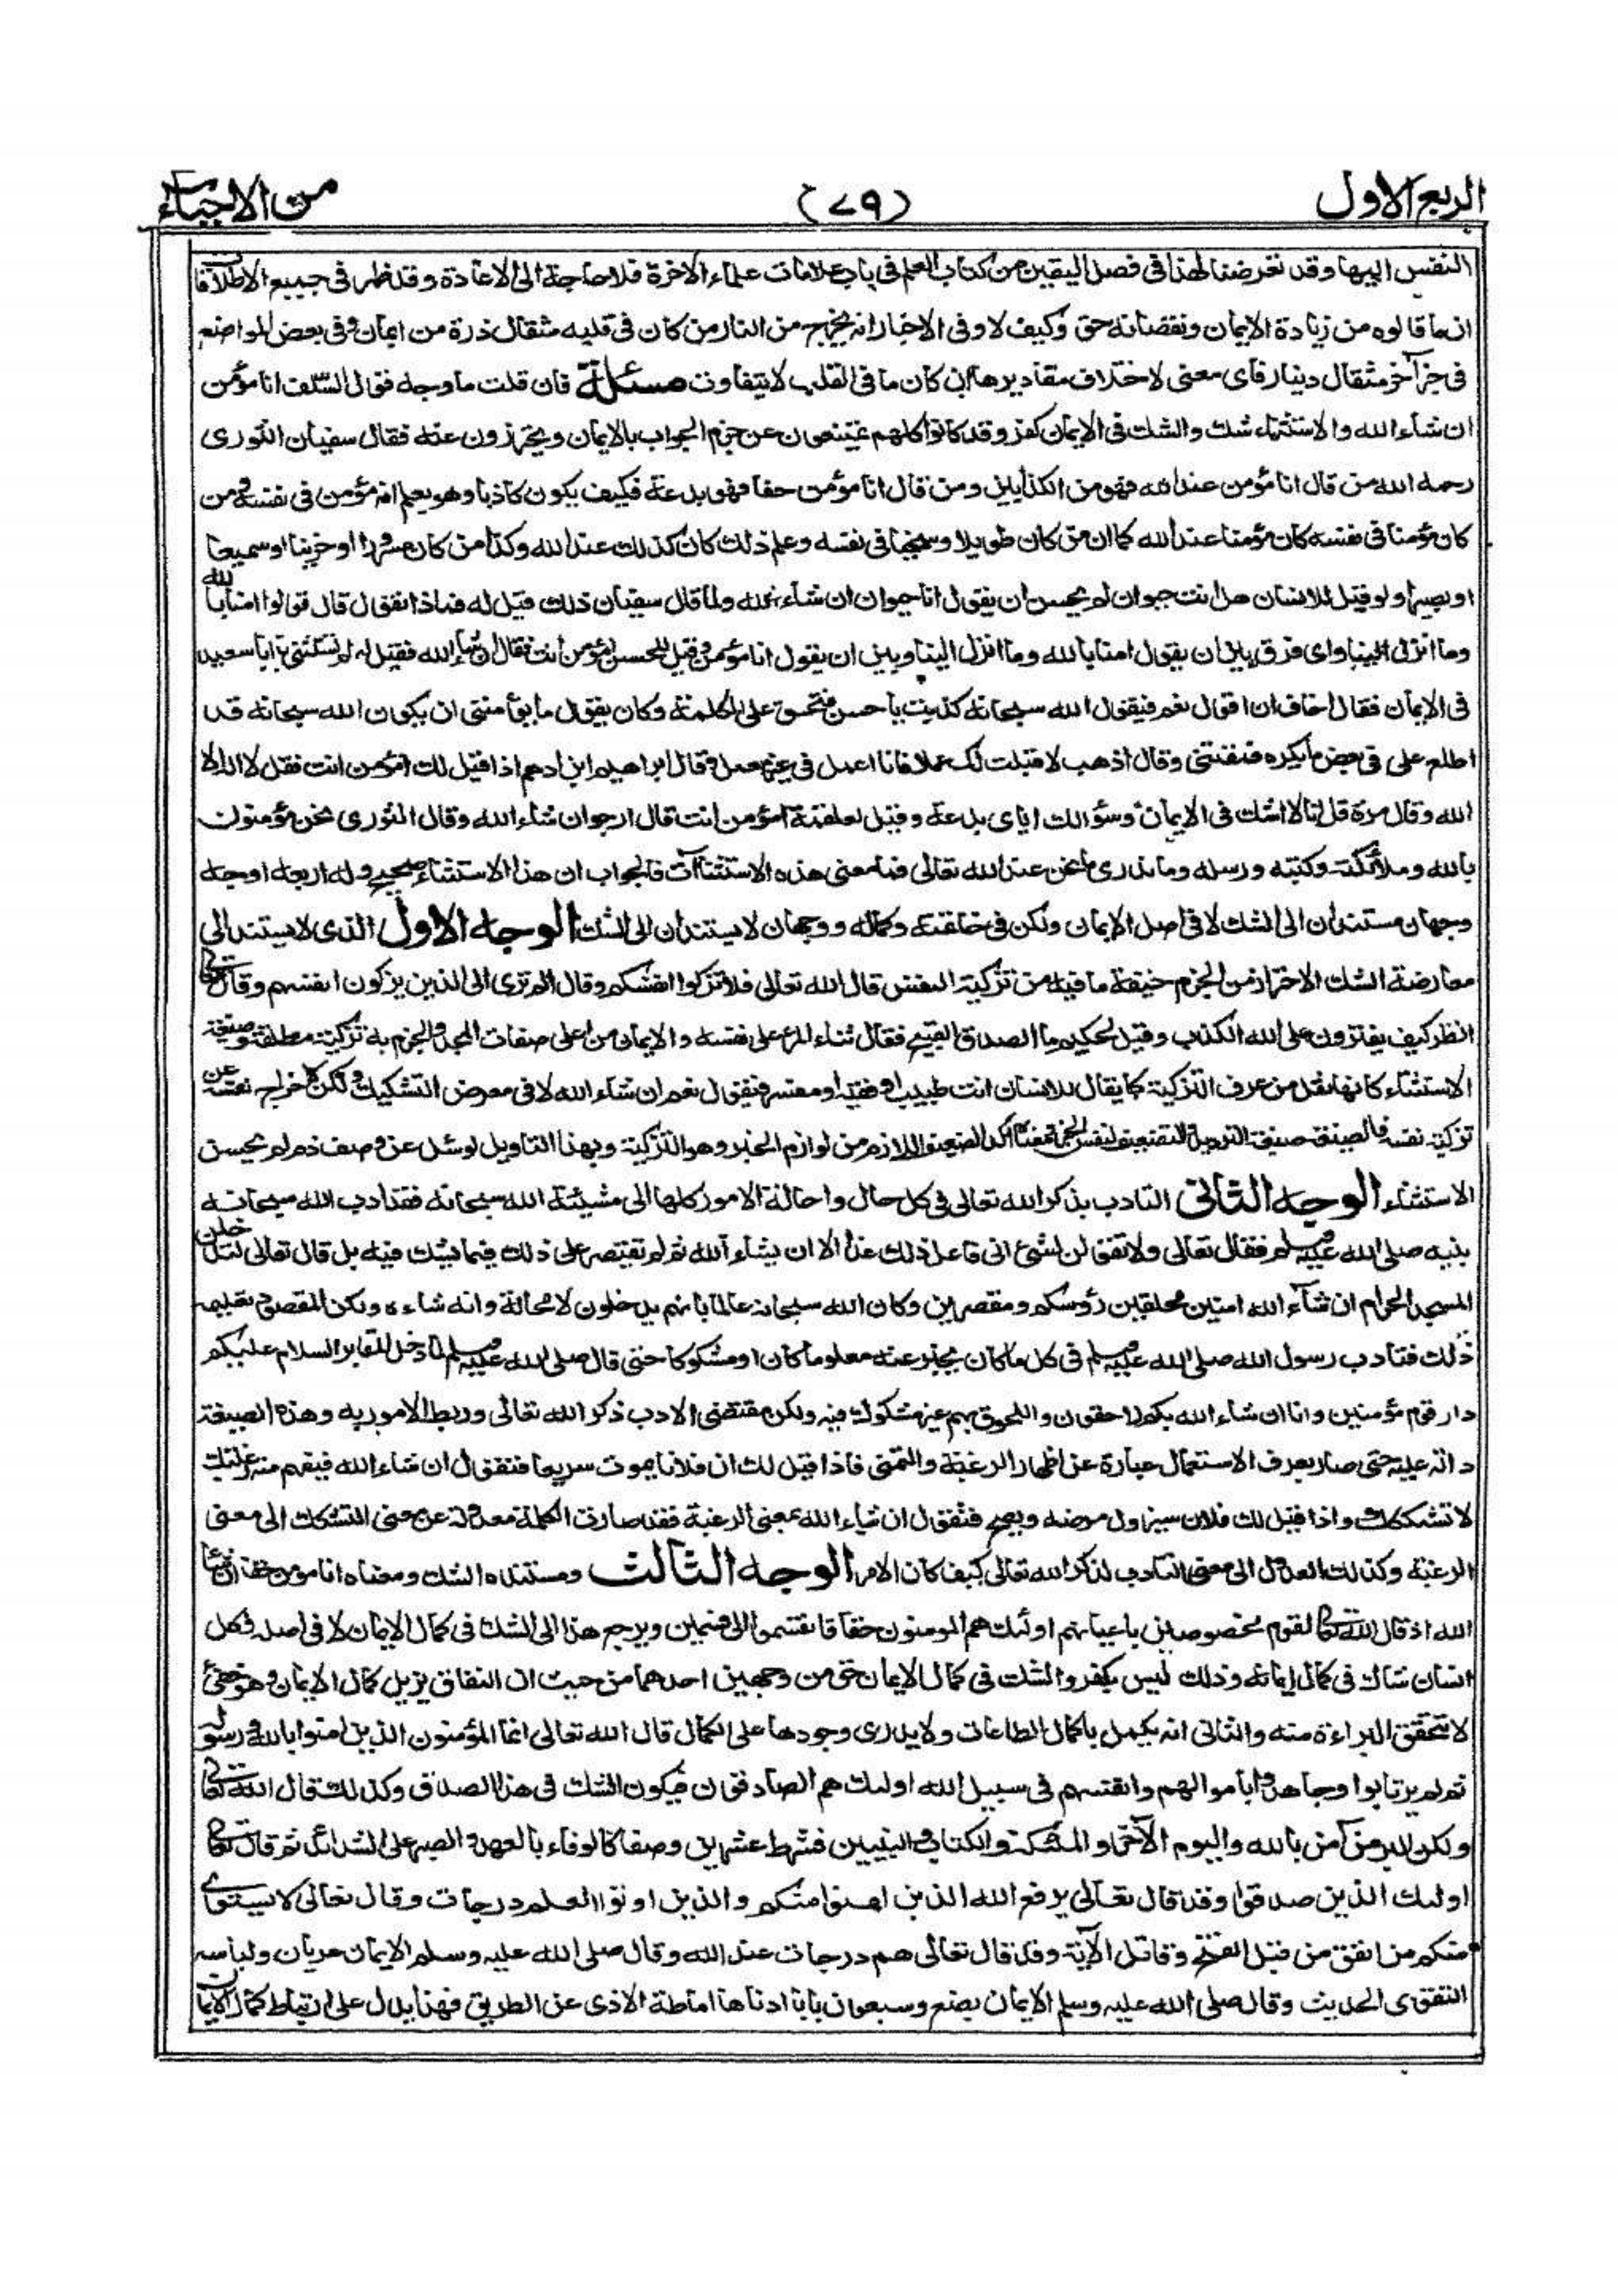 الربع الاول
(٧٩)
من الاحياء
النفس اليها وقد تعرضنا لهذا فى فصل اليقين من كتاب العلم فى باب علامات علماء الاخرة فلا حاجة الى الاعادة وقد ظهر فى جميع الاطلاقات
ان ما قالوه من زيادة الايمان ونقصانه حق وكيف لا وفى الاخبار انه يخرج من النار من كان فى قلبه مثقال ذرة من ايمان وفى بعض المواضع
فى خبر آخر مثقال دينار فاى معنى لاختلاف مقاديرها ان كان ما فى القلب لا يتفاوت مسئلة فان قلت ما وجه قول السلف انا مؤمن
ان شاء الله والاستثناء شك والشك فى الايمان كفر وقد كانوا كلهم يمتنعون عن جزم الجواب بالايمان ويحترزون عنه فقال سفيان الثورى
رحمه الله من قال انا مؤمن عند الله فهو من الكذابين ومن قال انا مؤمن حقا فهو بدعة فكيف يكون كاذبا وهو يعلم انه مؤمن فى نفسه ومن
كان مؤمنا فى نفسه كان مؤمنا عند الله كما ان من كان طويلا وسخيا فى نفسه وعلم ذلك كان كذلك عند الله وكذا من كان مسرورا او حزينا او سميعا
او بصيرا ولو قيل للانسان هل انت حيوان لم يحسن ان يقول انا حيوان ان شاء الله ولما قال سفيان ذلك قيل له فماذا نقول قال قولوا امنا بالله
وما انزل الينا واى فرق بين ان يقول امنا بالله وما انزل الينا وبين ان يقول انا مؤمن وقيل للحسن امؤمن انت فقال ان شاء الله فقيل له لم تستثنى يا ابا سعيد
فى الايمان فقال اخاف ان اقول نعم فيقول الله سبحانه كذبت يا حسن فتحق على الكلمة وكان يقول ما يؤمننى ان يكون الله سبحانه قد
اطلع على فى بعض ما يكره فمقتنى وقال اذهب لا قبلت لك عملا فانا اعمل فى غير معمل وقال ابراهيم ابن ادهم اذا قيل لك امؤمن انت فقل لا اله الا
الله وقال مرة قل انا لا اشك فى الايمان وسؤالك اياى بدعة وقيل لعلقمة امؤمن انت قال ارجو ان شاء الله وقال الثورى نحن مؤمنون
بالله وملائكته وكتبه ورسله وما ندرى ما نحن عند الله تعالى فما معنى هذه الاستثناآت فالجواب ان هذا الاستثناء صحيح وله اربعة اوجه
وجهان مستندان الى الشك لا فى اصل الايمان ولكن فى خاتمته وكماله ووجهان لا يستندان الى الشك الوجه الاول الذى لا يستند الى
معارضة الشك الاحتراز من الجزم خيفة ما فيه من تزكية النفس قال الله تعالى فلا تزكوا انفسكم وقال الم ترى الى الذين يزكون انفسهم وقال تعالى
انظر كيف يفترون على الله الكذب وقيل لحكيم ما الصدق القبيح فقال ثناء المرء على نفسه والايمان من اعلى صفات المجد والجزم به تزكية مطلقة وصيغة
الاستثناء كانها نقل من عرف التزكية كما يقال للانسان انت طبيب او فقيه او مفسر فيقول نعم ان شاء الله لا فى معرض التشكيك ولكن لاخراج نفسه عن
تزكية نفسه فالصيغة صيغة الترديد والتضعيف لنفس الخبر ومعناه التضعيف اللازم من لوازم الخبر وهو التزكية وبهذا التاويل لو سئل عن وصف ذم لم يحسن
الاستثناء الوجه الثانى التادب بذكر الله تعالى فى كل حال واحالة الامور كلها الى مشيئة الله سبحانه فقد ادب الله سبحانه
نبيه صلى الله عليه وسلم فقال تعالى ولا تقولن لشئ انى فاعل ذلك غدا الا ان يشاء الله ثم لم يقتصر على ذلك فيما يشك فيه بل قال تعالى لتدخلن
المسجد الحرام ان شآء الله امنين محلقين رؤسكم ومقصرين وكان الله سبحانه عالما بانهم يدخلون لا محالة وانه شاءه ولكن المقصود تعليمه
ذلك فتادب رسول الله صلى الله عليه وسلم فى كل ما كان يخبر عنه معلوما كان او مشكوكا حتى قال صلى الله عليه وسلم لما دخل المقابر السلام عليكم
دار قوم مؤمنين وانا ان شاء الله بكم لاحقون واللحوق بهم غير مشكوك فيه ولكن مقتضى الادب ذكر الله تعالى وربط الامور به وهذه الصيغة
دالة عليه حتى صار بعرف الاستعمال عبارة عن اظهار الرغبة والتمنى فاذا قيل لك ان فلانا يموت سريعا فتقول ان شاء الله فيفهم منه رغبتك
لا تشككك واذا قيل لك فلان سيزول مرضه ويصح فتقول ان شاء الله بمعنى الرغبة فقد صارت الكلمة معدولة عن معنى التشكك الى معنى
الرغبة وكذلك العدول الى معنى التادب لذكر الله تعالى كيف كان الامر الوجه الثالث ومستنده الشك ومعناه انا مؤمن حقا ان شاء
الله اذ قال الله تعالى لقوم مخصوصين باعيانهم اولئك هم المومنون حقا فانقسموا الى قسمين ويرجع هذا الى الشك فى كمال الايمان لا فى اصله وكل
انسان شاك فى كمال ايمانه وذلك ليس بكفر والشك فى كمال الايمان حق من وجهين احدهما من حيث ان النفاق يزيل كمال الايمان وهو خفى
لا تتحقق البراءة منه والثانى انه يكمل باكمال الطاعات ولا يدرى وجودها على الكمال قال الله تعالى انما المؤمنون الذين امنوا بالله ورسوله
ثم لم يرتابوا وجاهدوا باموالهم وانفسهم فى سبيل الله اولئك هم الصادقون فيكون الشك فى هذا الصدق وكذلك قال الله تعالى
ولكن البر من آمن بالله واليوم الآخر والملئكة والكتاب والنبيين فشرط عشرين وصفا كالوفاء بالعهد والصبر على الشدائد ثم قال تعالى
اولئك الذين صدقوا وقد قال تعالى يرفع الله الذين امنوا منكم والذين اوتوا العلم درجات وقال تعالى لا يستوى
منكم من انفق من قبل الفتح وقاتل الآية وقد قال تعالى هم درجات عند الله وقال صلى الله عليه وسلم الايمان عريان ولباسه
التقوى الحديث وقال صلى الله عليه وسلم الايمان بضع وسبعون بابا ادناها اماطة الاذى عن الطريق فهذا يدل على ارتباط كمال الايمان